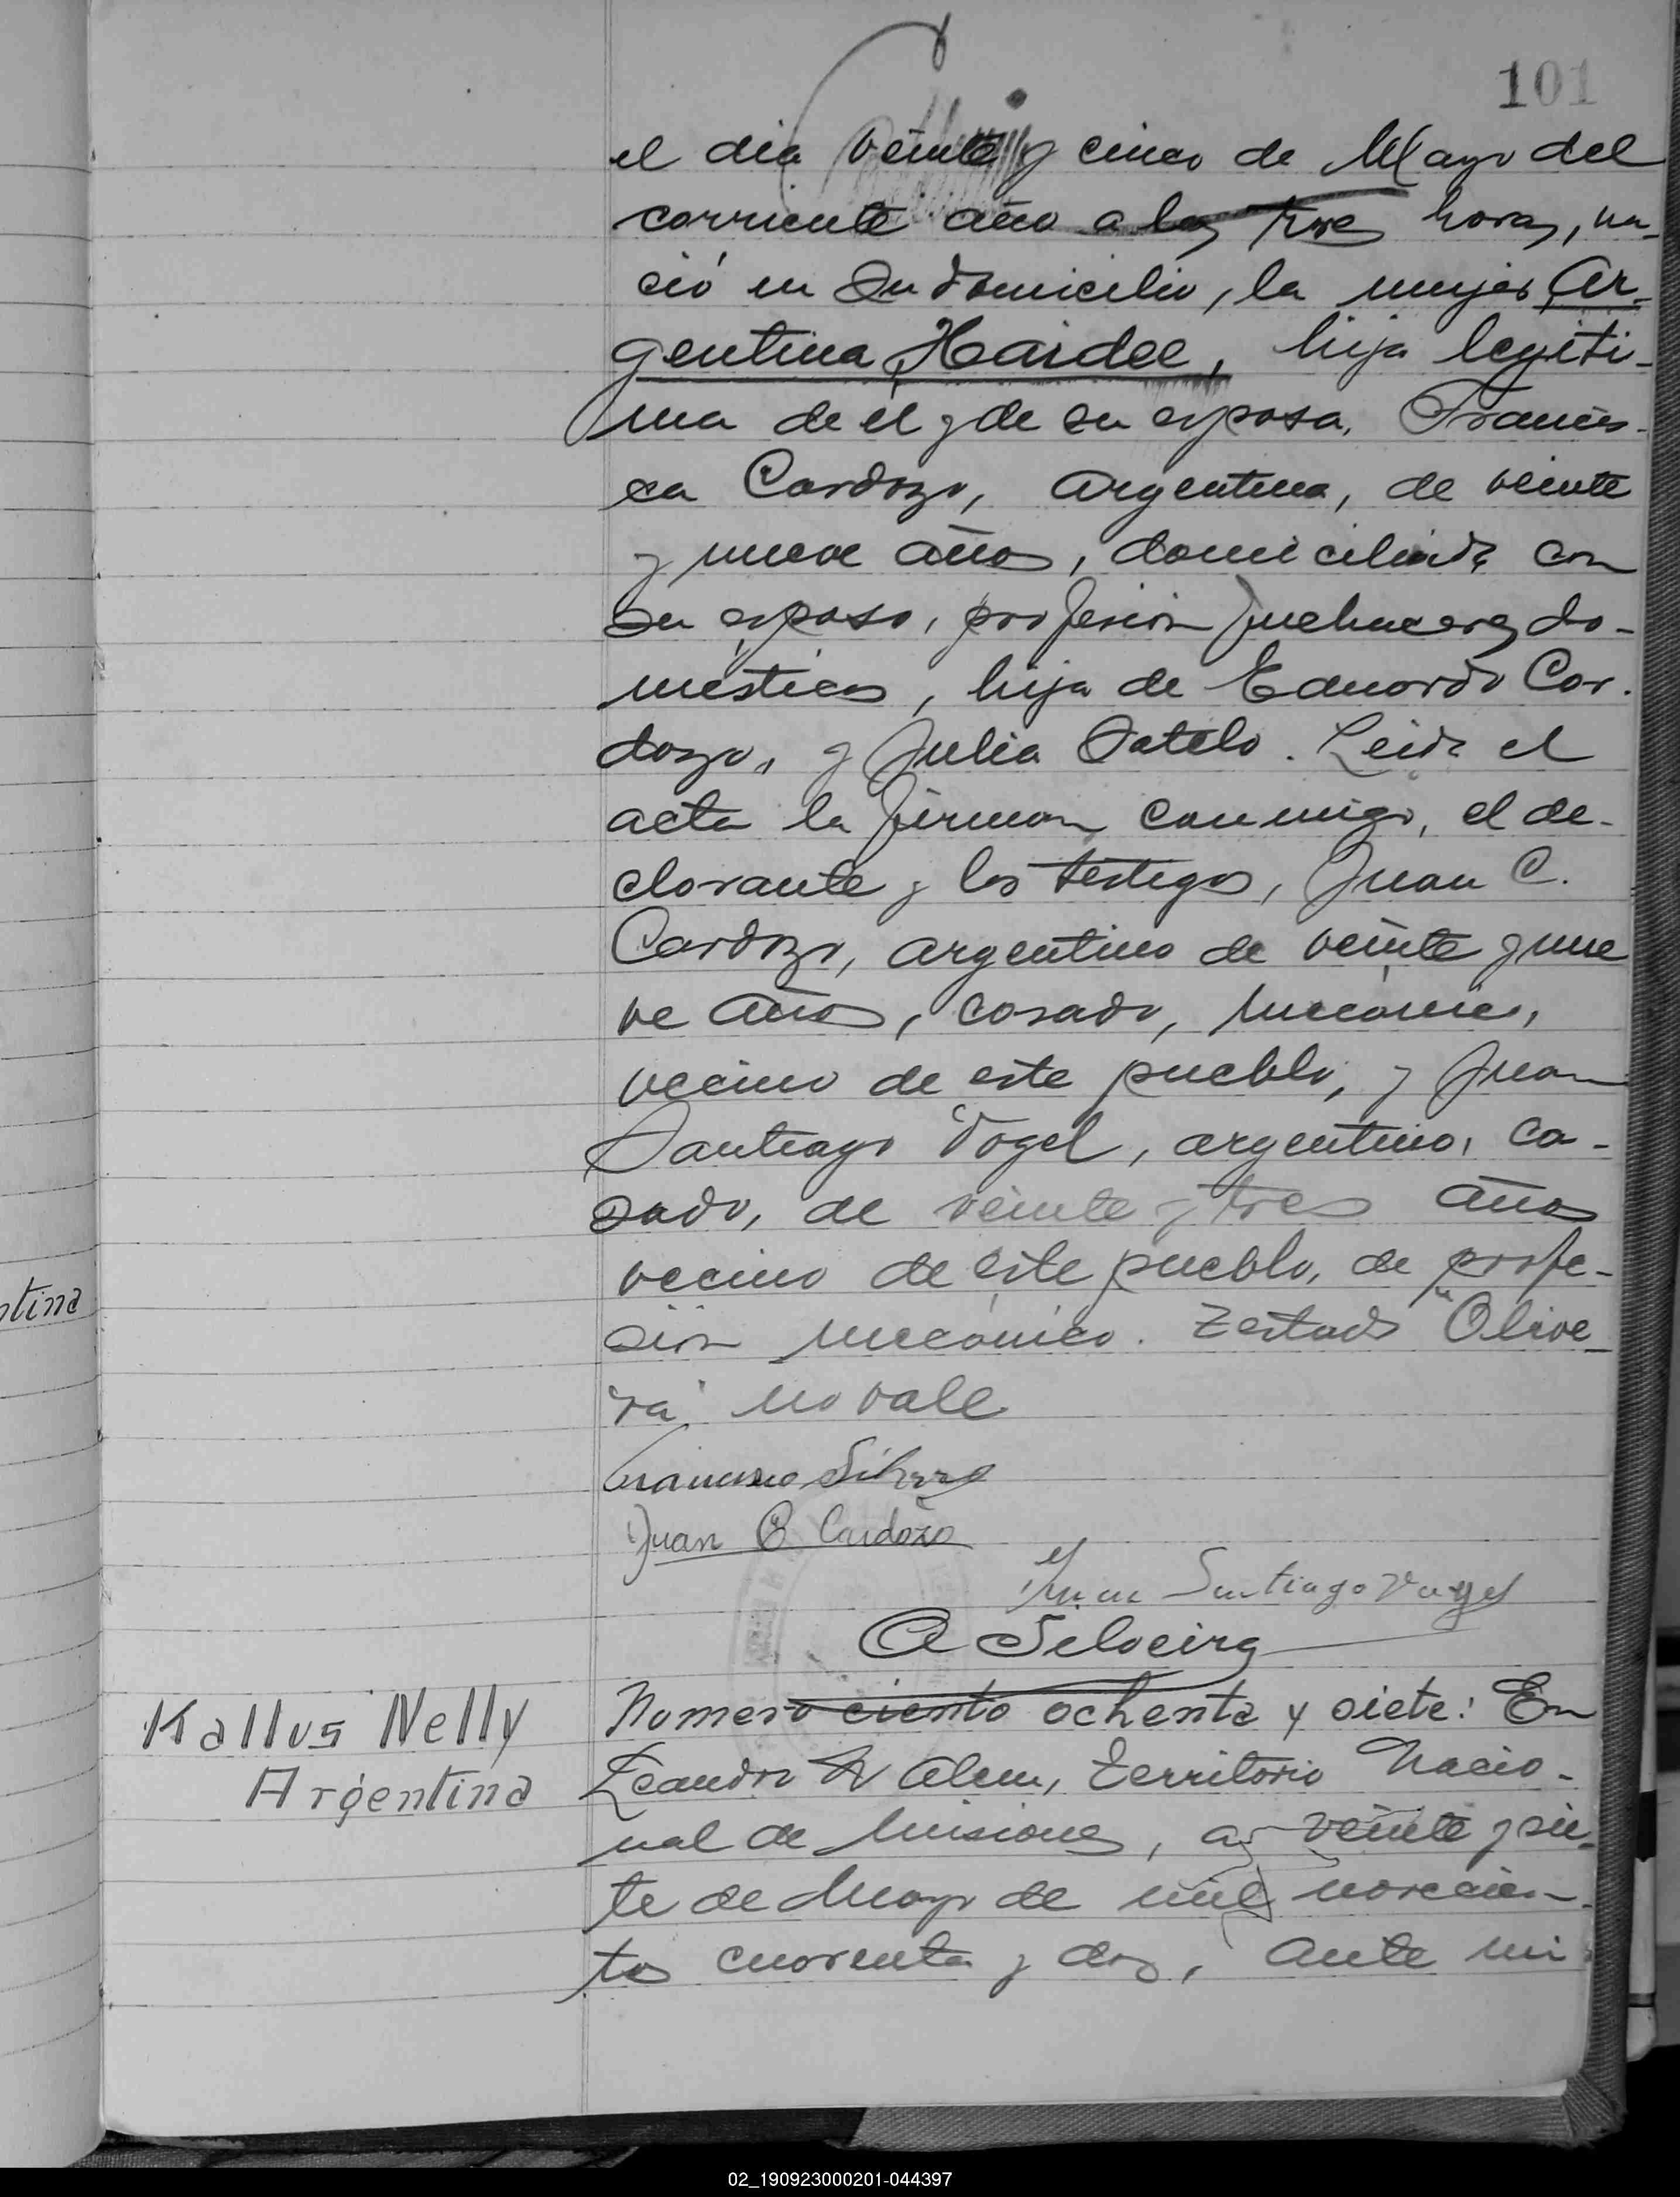 101
el dia veinte y cinco de Mayo del
corriente año a las tres horas, na-
ció en su domicilio, la mujer Ar-
gentina Haidee, hija legiti-
ma de el y de su esposa, Francis-
ca Cardozo, argentina, de veinte
y nueve años, domiciliada con
su esposo, profesion quehaceres do-
mésticos, hija de Eduardo Car-
dozo, y Julia Sotelo. Leida el
acta la firman conmigo, el de-
clarante y los testigos, Juan C.
Cardozo, argentino de veinte y nue
ve años, casado, mecanico,
vecino de este pueblo, y Juan
Santiago Vogel, argentino, ca-
sado, de veinte y tres años
vecino de este pueblo, de profe-
sion mecánico. Testado "Olive-
ra" no vale
ntina
Juan C Cardozo
Juan Santiago Vogel
A Silveira
Kallus Nelly
Argentina
Numero ciento ochenta y siete: En
Leandro N Alem, Territorio Nacio-
nal de Misiones, a veinte y sie-
te de Mayo de mil novecien-
tos cuarenta y dos, ante mi
02_190923000201-044397